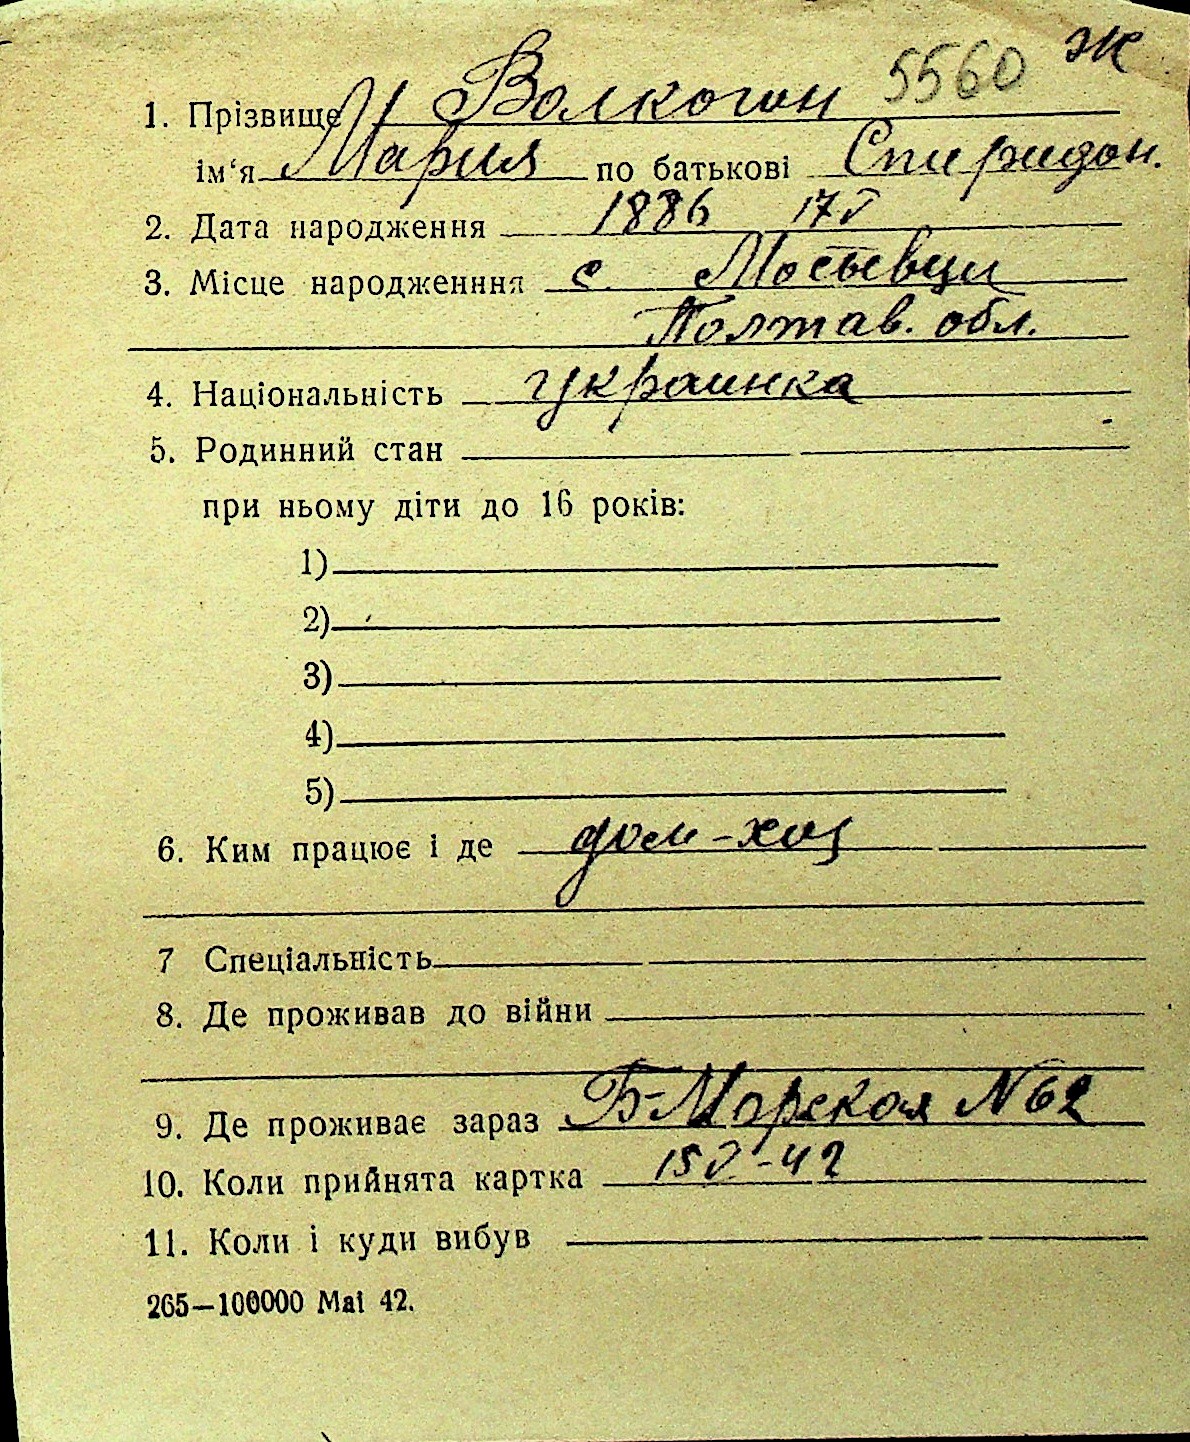 5560 ж
1. Прізвище Волкогон
ім‘я Мария по батькові Спиридон.
2. Дата народження 1886 17 V
3. Місце народженння с. Мосьевци
Полтав. обл.
4. Національність украинка
5. Родинний стан
при ньому діти до 16 років:
1)
2)
3)
4)
5)
6. Ким працює і де дом-хоз
7 Спеціальність
8. Де проживав до війни
9. Де проживає зараз Б-Морская N 62
10. Коли прийнята картка 15 V-42
11. Коли і куди вибув
265—100000 Mai 42.